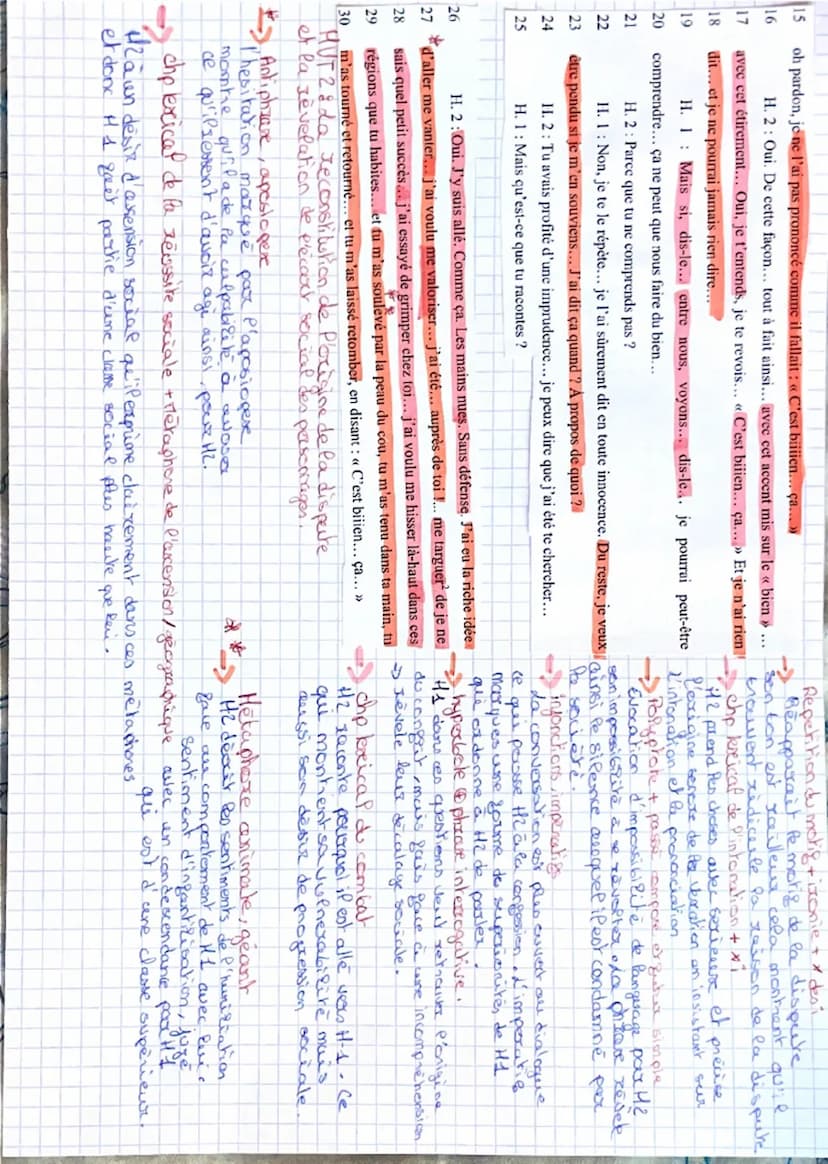 15 oh pardon, je ne l'ai pas prononcé comme il fallait : « C'est biiien... ça... »
16 H. 2 : Oui. De cette façon... tout à fait ainsi... avec cet accent mis sur le « bien » ...
17 avec cet étirement... Oui, je t'entends, je te revois... « C'est biiien... ça... » Et je n'ai rien
18 dit... et je ne pourrai jamais rien dire...
19 H. 1 : Mais si, dis-le... entre nous, voyons... dis-le... je pourrai peut-être
20 comprendre... ça ne peut que nous faire du bien...
21 H. 2 : Parce que tu ne comprends pas ?
22 H. 1 : Non, je te le répète... je l'ai sûrement dit en toute innocence. Du reste, je veux
23 être pendu si je m'en souviens... J'ai dit ça quand ? À propos de quoi ?
24 H. 2 : Tu avais profité d'une imprudence... je peux dire que j'ai été te chercher...
25 H. 1 : Mais qu'est-ce que tu racontes ?
26 H. 2 : Oui. J'y suis allé. Comme ça. Les mains nues. Sans défense. J'ai eu la riche idée
27 * d'aller me vanter... j'ai voulu me valoriser... j'ai été... auprès de toi !... me targuer² de je ne
28 sais quel petit succès... j'ai essayé de grimper chez toi... j'ai voulu me hisser là-haut dans ces
29 régions que tu habites... et tu m'as soulevé par la peau du cou, tu m'as tenu dans ta main, tu
30 m'as tourné et retourné... et tu m'as laissé retomber, en disant : « C'est biiien... ça... »
MVT 2 : La reconstitution de l'origine de la dispute
et la révélation de l'écart social des personnages.
* → Antiphrase, aposiopèse
l'hésitation marqué par l'aposiopèse
montre qu'il a de la culpabilité à avouer
ce qu'il ressent d'avoir agi ainsi, pour H2.
→ chp lexical de la réussite sociale + métaphore de l'ascension/géographique
H2 a un désir d'ascension social qu'il exprime clairement dans ces métaphores
et donc H1 fait partie d'une classe social plus haute que lui.
Répétition du motif + ironie +
→ Réapparait le motif de la dispute
son ton est railleur cela montrant qu'il
trouvent ridicule la raison de la dispute
→ chp lexical de l'intonation +
H2 prend les choses avec sérieuse et précise
l'origine sonore de la vibration en insistant sur
l'intonation et la prononciation
→ Polyptote + passé composé et futur simple
Évocation d'impossibilité de langage par H2
son impossibilité à se révolter. La phrase révèle
ainsi le silence auquel il est condamné par
la société.
→ injonctions, impératifs
La conversation est plus ouvert au dialogue
ce qui pousse H2 à la confession. L'impératif
marques une forme de supériorités de H1
que ordonne à H2 de parler.
→ hyperbole + phrase interrogative.
H1 dans ces questions veut retrouver l'origine
du conflit, mais fais face à une incompréhension
→ révèle leur décalage sociale.
→ chp lexical du combat
H2 raconte pourquoi il est allé vers H-1. Ce
qui montrent sa vulnérabilité mais
aussi son désir de progression sociale.
** → Métaphore animale, géant
H2 décrit les sentiments de l'humiliation
face au comportement de H1 avec lui.
sentiment d'infantilisation, jugé
avec un condescendance par H1
qui est d'une classe supérieur.